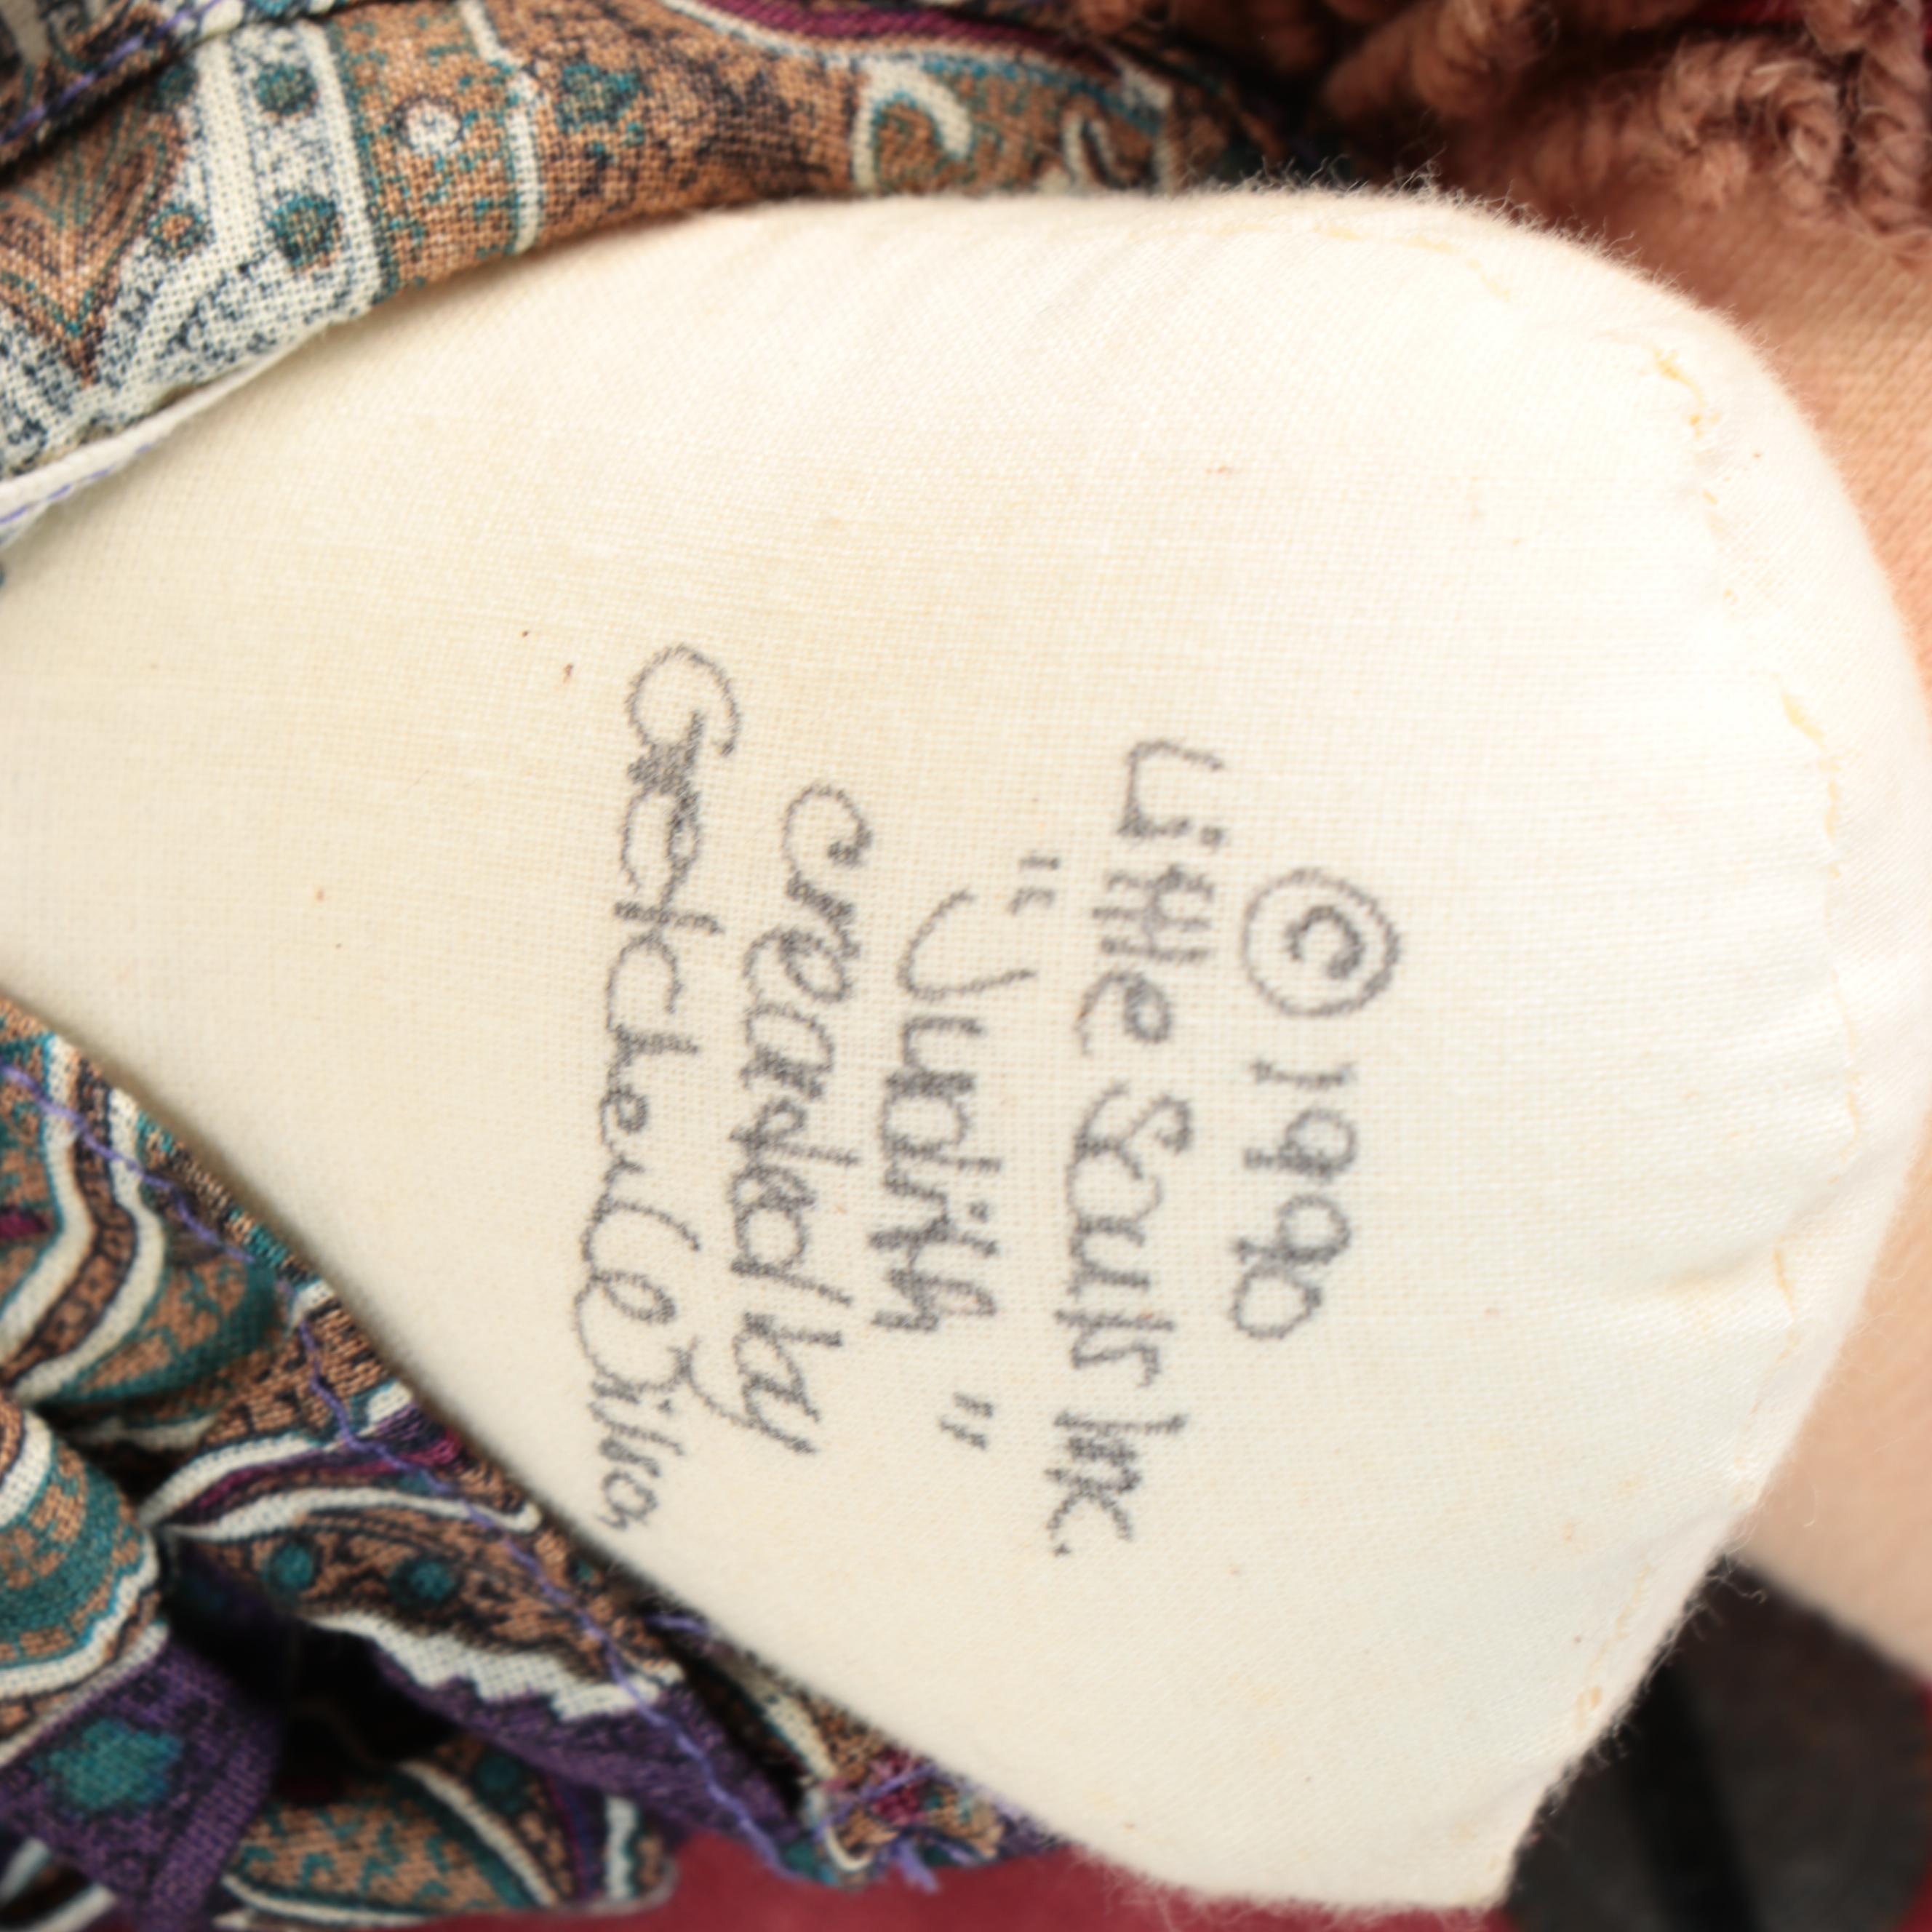 © 1990
Little Souls Inc.
"Judith"
created by
Gretchen Wilson